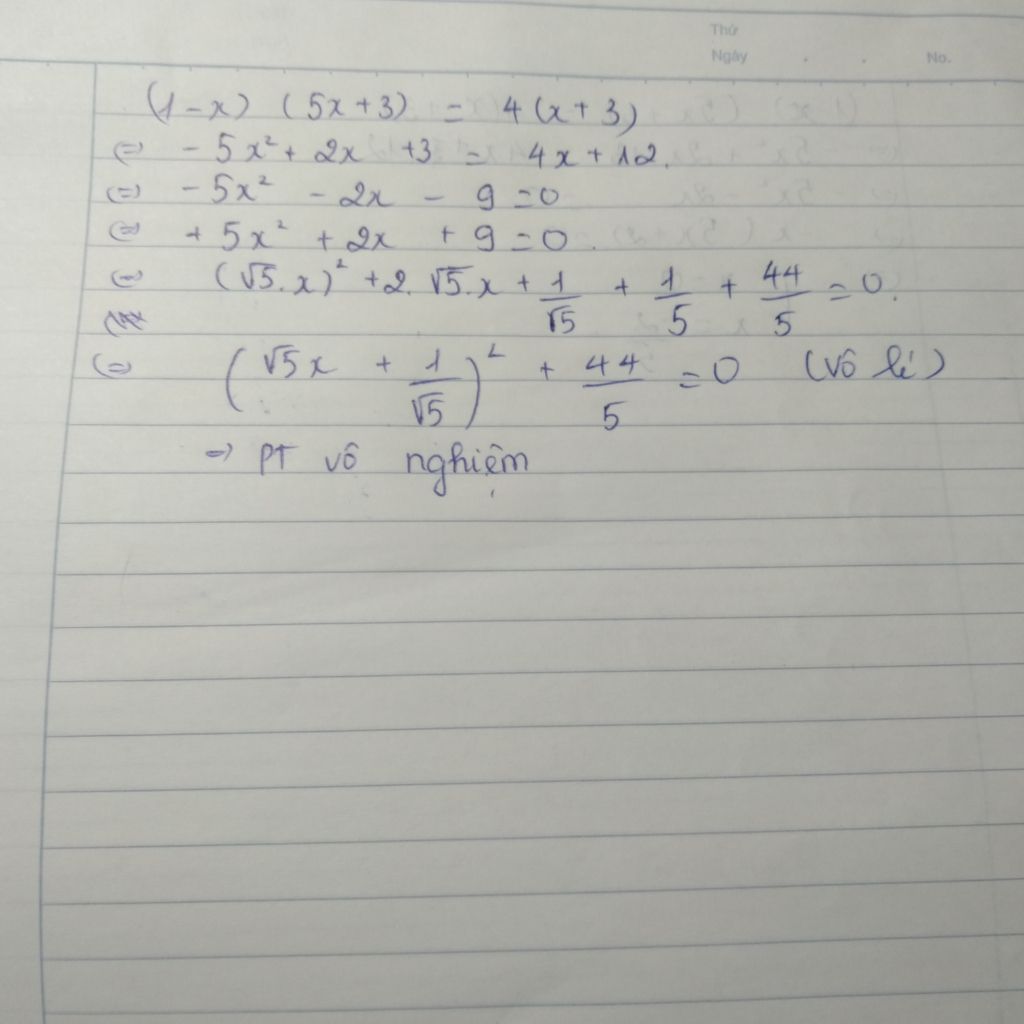 Thứ
Ngày . . No.
(1-x) (5x+3) = 4(x+3)
⇔ - 5x² + 2x +3 = 4x+12.
⇔ - 5x² - 2x - 9 =0
⇔ + 5x² + 2x + 9 =0.
⇔ (√5.x)² +2.√5.x + 1/√5 + 1/5 + 44/5 = 0.
⇔ (√5x + 1/√5)² + 44/5 = 0 (vô lí)
⇒ PT vô nghiệm